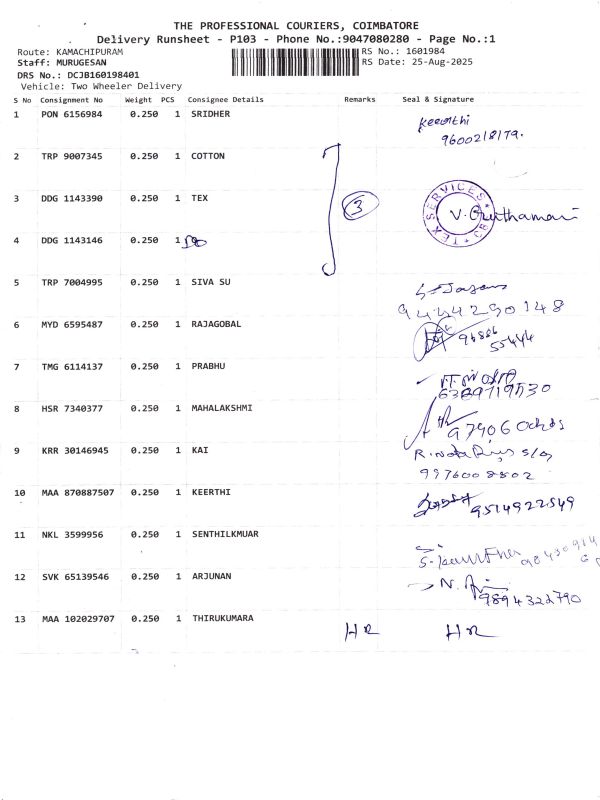 THE PROFESSIONAL COURIERS, COIMBATORE
Delivery Runsheet - P103 - Phone No.:9047080280 - Page No.:1
Route: KAMACHIPURAM RS No.: 1601984
Staff: MURUGESAN RS Date: 25-Aug-2025
DRS No.: DCJB160198401
Vehicle: Two Wheeler Delivery
S No Consignment No Weight PCS Consignee Details Remarks Seal & Signature
1 PON 6156984 0.250 1 SRIDHER
Keerthi
9600218179.
2 TRP 9007345 0.250 1 COTTON
3 DDG 1143390 0.250 1 TEX 3 TEX SERVICES CBE
4 DDG 1143146 0.250 1
5 TRP 7004995 0.250 1 SIVA SU
9444290148
6 MYD 6595487 0.250 1 RAJAGOBAL
96886
55444
7 TMG 6114137 0.250 1 PRABHU
8 HSR 7340377 0.250 1 MAHALAKSHMI
9 KRR 30146945 0.250 1 KAI
9976008802
10 MAA 870887507 0.250 1 KEERTHI
9514922549
11 NKL 3599956 0.250 1 SENTHILKMUAR
12 SVK 65139546 0.250 1 ARJUNAN
9894322790
13 MAA 102029707 0.250 1 THIRUKUMARA
HR HR